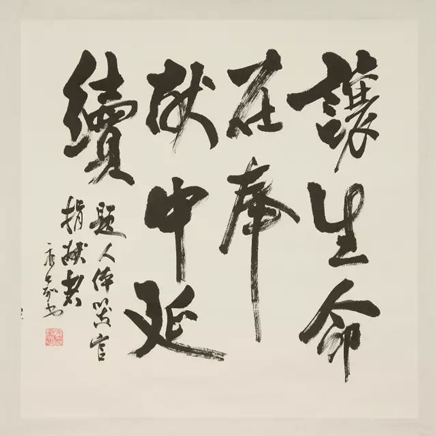 讓生命
在奉
献中延
續
题人体器官
捐献者